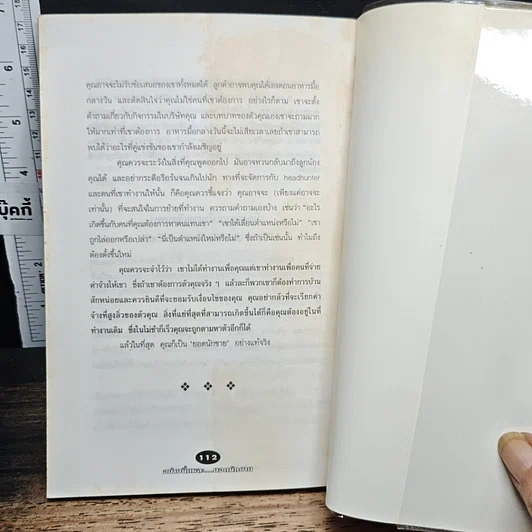 คุณอาจจะไม่รับข้อเสนอของเขาทั้งหมดได้ ลูกค้าอาจพบคุณได้เองตอนอาหารมื้อ
กลางวัน และตัดสินใจว่าคุณไม่ใช่คนที่เขาต้องการ อย่างไรก็ตาม เขาจะตั้ง
คำถามเกี่ยวกับกิจกรรมในบริษัทคุณ และบทบาทของตัวคุณเองเขาจะถามมาก
ให้มากเท่าที่เขาต้องการ อาหารมื้อกลางวันนี้จะไม่เสียเวลาเลยถ้าเขาสามารถ
พบได้ว่าอะไรที่คู่แข่งขันของเขากำลังเผชิญอยู่
คุณควรจะระวังในสิ่งที่คุณพูดออกไป มันอาจหวนกลับมาถึงลูกน้อง
คุณได้ และอย่ากระตือรือร้นจนเกินไปนัก ทางที่จะจัดการกับ headhunter
และคนที่เขาทำงานให้นั้น ก็คือคุณควรชี้แจงว่า คุณอาจจะ (เพียงแต่อาจจะ
เท่านั้น) ที่จะสนใจในการย้ายที่ทำงาน ควรถามคำถามเองบ้าง เช่นว่า "อะไร
เกิดขึ้นกับคนที่คุณต้องการหาคนแทนเขา" "เขาได้เลื่อนตำแหน่งหรือไม่" "เขา
ถูกไล่ออกหรือเปล่า" "นี่เป็นตำแหน่งใหม่หรือไม่" ซึ่งถ้าเป็นเช่นนั้น ทำไมถึง
ต้องตั้งขึ้นใหม่
คุณควรจะจำไว้ว่า เขาไม่ได้ทำงานเพื่อคุณแต่เขาทำงานเพื่อคนที่จ่าย
ค่าจ้างให้เขา ซึ่งถ้าเขาต้องการตัวคุณจริง ๆ แล้วละก็พวกเขาก็ต้องทำการบ้าน
สักหน่อยและควรยินดีที่จะยอมรับเงื่อนไขของคุณ คุณอย่ากลัวที่จะเรียกค่า
จ้างที่สูงลิ่วของตัวคุณ สิ่งที่แย่ที่สุดที่สามารถเกิดขึ้นได้ก็คือคุณต้องอยู่ในที่
ทำงานเดิม ซึ่งในไม่ช้าก็เร็วคุณจะถูกตามหาตัวอีกก็ได้
แล้วในที่สุด คุณก็เป็น 'ยอดนักขาย' อย่างแท้จริง
112